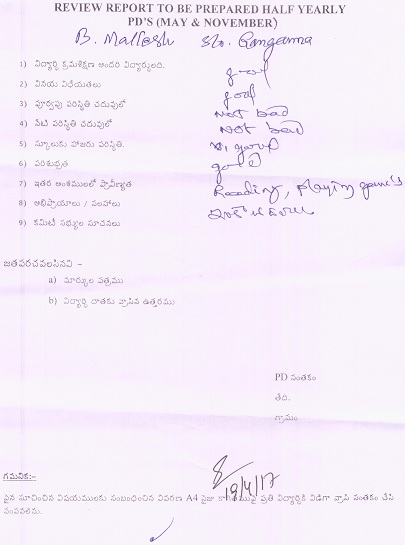 REVIEW REPORT TO BE PREPARED HALF YEARLY
PD'S (MAY & NOVEMBER)
B. Mallesh S/o. Ranganna
1) విద్యార్థి క్రమశిక్షణ అందరి విద్యార్థులది. good
2) వినయ విధేయతలు good
3) పూర్వపు పరిస్థితి చదువులో Not bad
4) నేటి పరిస్థితి చదువులో Not bad
5) స్కూలుకు హాజరు పరిస్థితి. v. good
6) పరిశుభ్రత good
7) ఇతర అంశములలో ప్రావీణ్యత Reading, playing game's
8) అభిప్రాయాలు / సలహాలు
9) కమిటీ సభ్యుల సూచనలు
జతపరచవలసినవి -
a) మార్కుల పత్రము
b) విద్యార్థి దాతకు వ్రాసిన ఉత్తరము
PD సంతకం
తేది.
గ్రామం
19/4/17
గమనిక:-
పైన సూచించిన విషయములకు సంబంధించిన వివరణ A4 సైజు కాగితముపై ప్రతి విద్యార్థికి విడిగా వ్రాసి సంతకం చేసి
పంపవలెను.